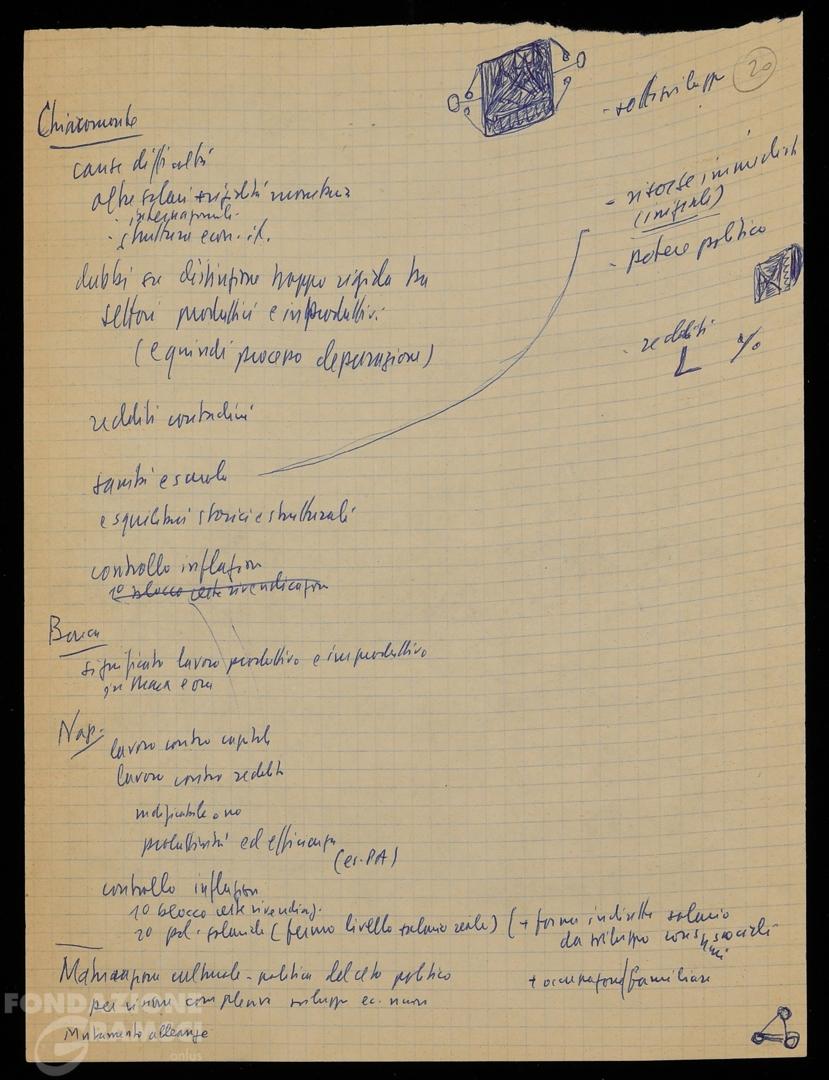 20
- sottosviluppo
Chiaromonte
cause difficoltà
oltre salari e rigidità monetaria
- internazionali
- struttura econ. it.
- risorse immediate
(iniziali)
- potere politico
dubbi su distinzione troppo rigida tra
settori produttivi e improduttivi
(e quindi processo depurazione)
- redditi
L %
redditi contadini
sanità e scuola
e squilibri storici e strutturali
controllo inflazion
1º blocco certe rivendicazion
Barca
significato lavoro produttivo e improduttivo
in Marx e ora
Nap.
lavoro contro capitale
lavoro contro reddito
modificabile o no
produttività ed efficienza
(es. PA)
controllo inflazion
1º blocco certe rivendicaz.
2º pol. salariale (fermo livello salario reale) (+ forme indirette salario
da sviluppo consumi sociali
+ occupazione familiare
Maturazione culturale-politica del ceto politico
per visione complessiva sviluppo ec. nuovo
Mutamento alleanze
FONDAZIONE
GRAMSCI
onlus